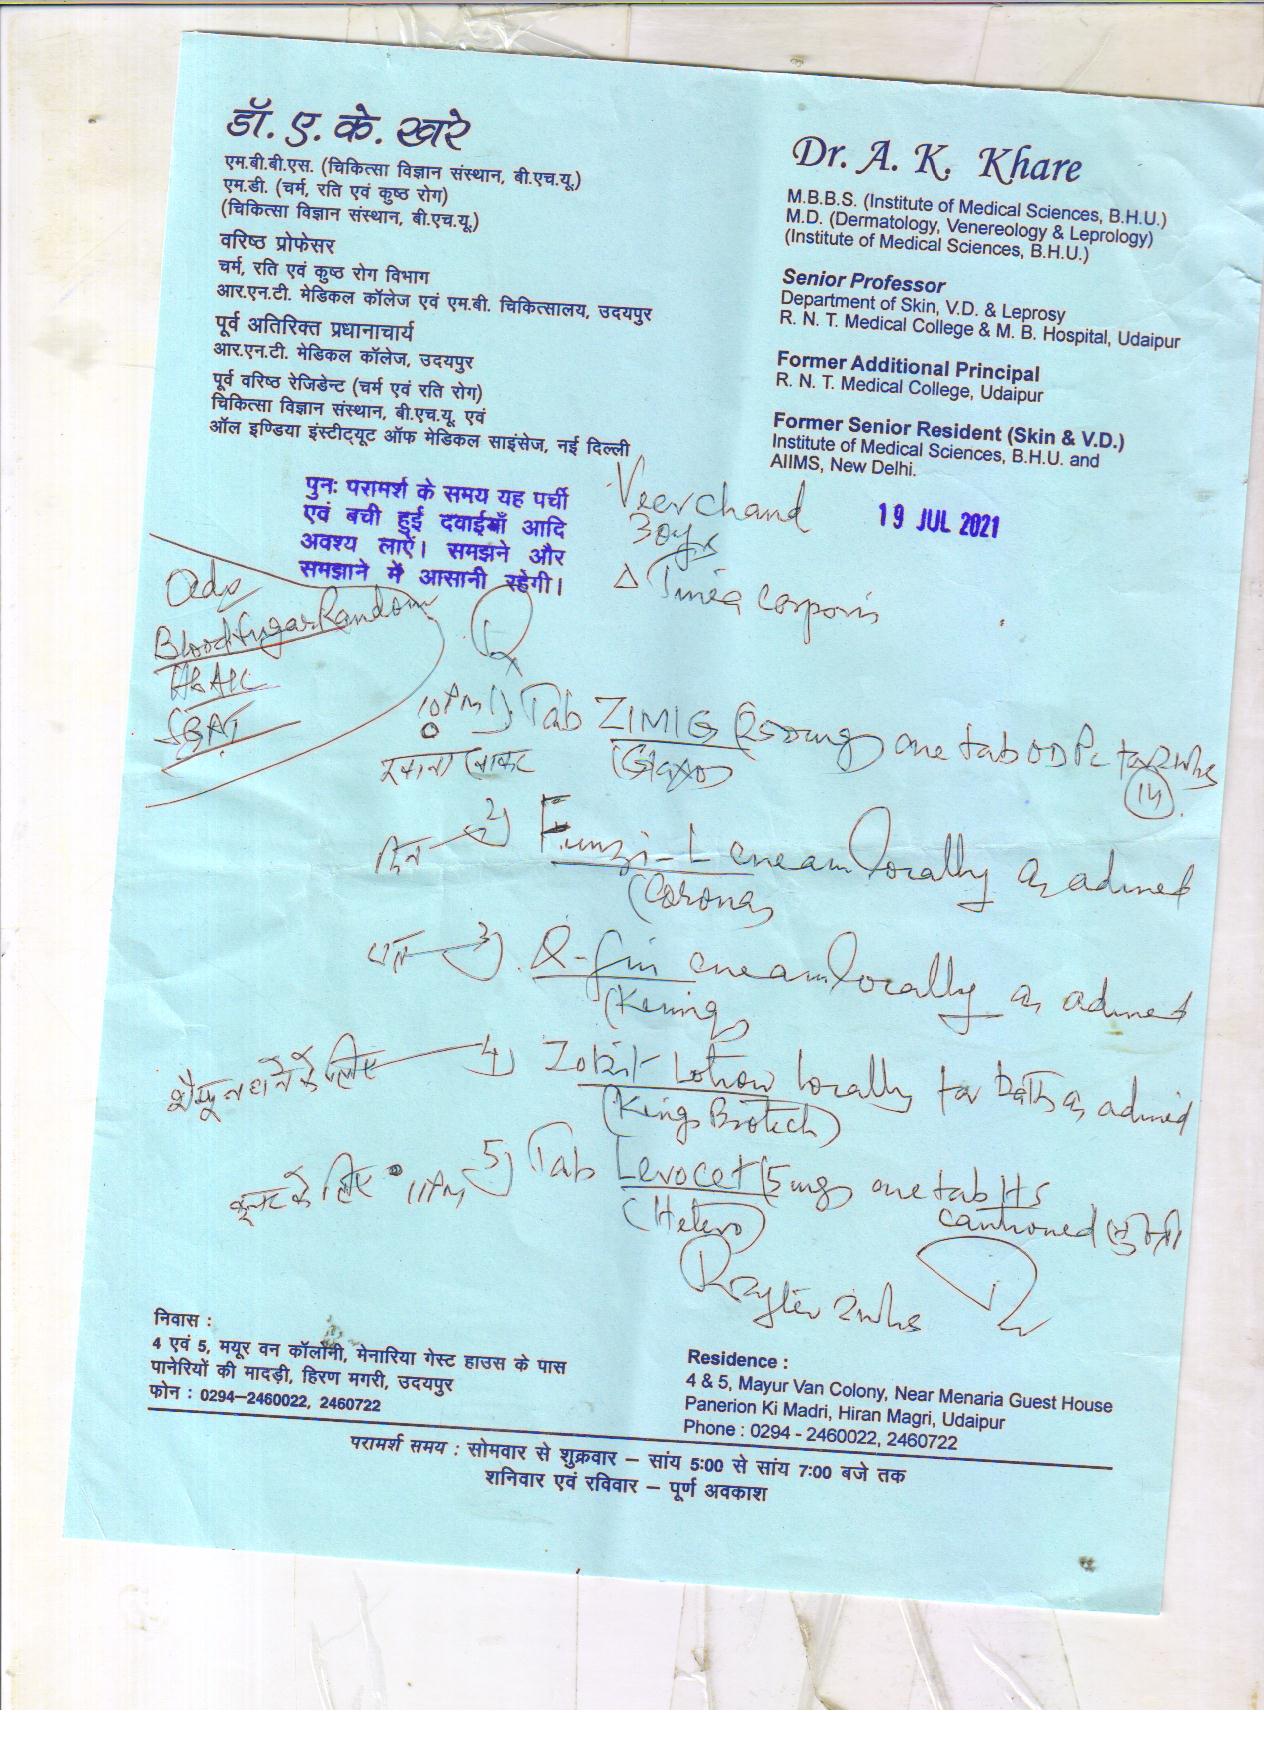 डॉ. ए. के. खरे
एम.बी.बी.एस. (चिकित्सा विज्ञान संस्थान, बी.एच.यू.)
एम.डी. (चर्म, रति एवं कुष्ठ रोग)
(चिकित्सा विज्ञान संस्थान, बी.एच.यू.)
वरिष्ठ प्रोफेसर
चर्म, रति एवं कुष्ठ रोग विभाग
आर.एन.टी. मेडिकल कॉलेज एवं एम.बी. चिकित्सालय, उदयपुर
पूर्व अतिरिक्त प्रधानाचार्य
आर.एन.टी. मेडिकल कॉलेज, उदयपुर
पूर्व वरिष्ठ रेजिडेन्ट (चर्म एवं रति रोग)
चिकित्सा विज्ञान संस्थान, बी.एच.यू. एवं
ऑल इण्डिया इंस्टीट्यूट ऑफ मेडिकल साइंसेज, नई दिल्ली
Dr. A. K. Khare
M.B.B.S. (Institute of Medical Sciences, B.H.U.)
M.D. (Dermatology, Venereology & Leprology)
(Institute of Medical Sciences, B.H.U.)
Senior Professor
Department of Skin, V.D. & Leprosy
R. N. T. Medical College & M. B. Hospital, Udaipur
Former Additional Principal
R. N. T. Medical College, Udaipur
Former Senior Resident (Skin & V.D.)
Institute of Medical Sciences, B.H.U. and
AIIMS, New Delhi.
पुनः परामर्श के समय यह पर्ची
एवं बची हुई दवाईयाँ आदि
अवश्य लाऐं। समझने और
समझाने में आसानी रहेगी।
Veerchand
30yrs
19 JUL 2021
Δ Tinea Corporis
Adv
Blood Sugar Random
HbA1C
SGPT
Rx
10PM 1) Tab ZIMIG (250mg) one tab OD Pc for 2wks
खाना खाकर (Glaxo) (14)
दिन 2) Funzi-L cream locally as advised
(Corona)
रात 3) Q-fin cream locally as advised
4) Lotion locally for bath as advised
(King Biotech)
के लिए 11PM 5) Tab Levocet (5mg) one tab HS
(Hetero) cautioned
2wks
निवास :
4 एवं 5, मयूर वन कॉलोनी, मेनारिया गेस्ट हाउस के पास
पानेरियों की मादड़ी, हिरण मगरी, उदयपुर
फोन : 0294–2460022, 2460722
Residence :
4 & 5, Mayur Van Colony, Near Menaria Guest House
Panerion Ki Madri, Hiran Magri, Udaipur
Phone : 0294 - 2460022, 2460722
परामर्श समय : सोमवार से शुक्रवार – सांय 5:00 से सांय 7:00 बजे तक
शनिवार एवं रविवार – पूर्ण अवकाश